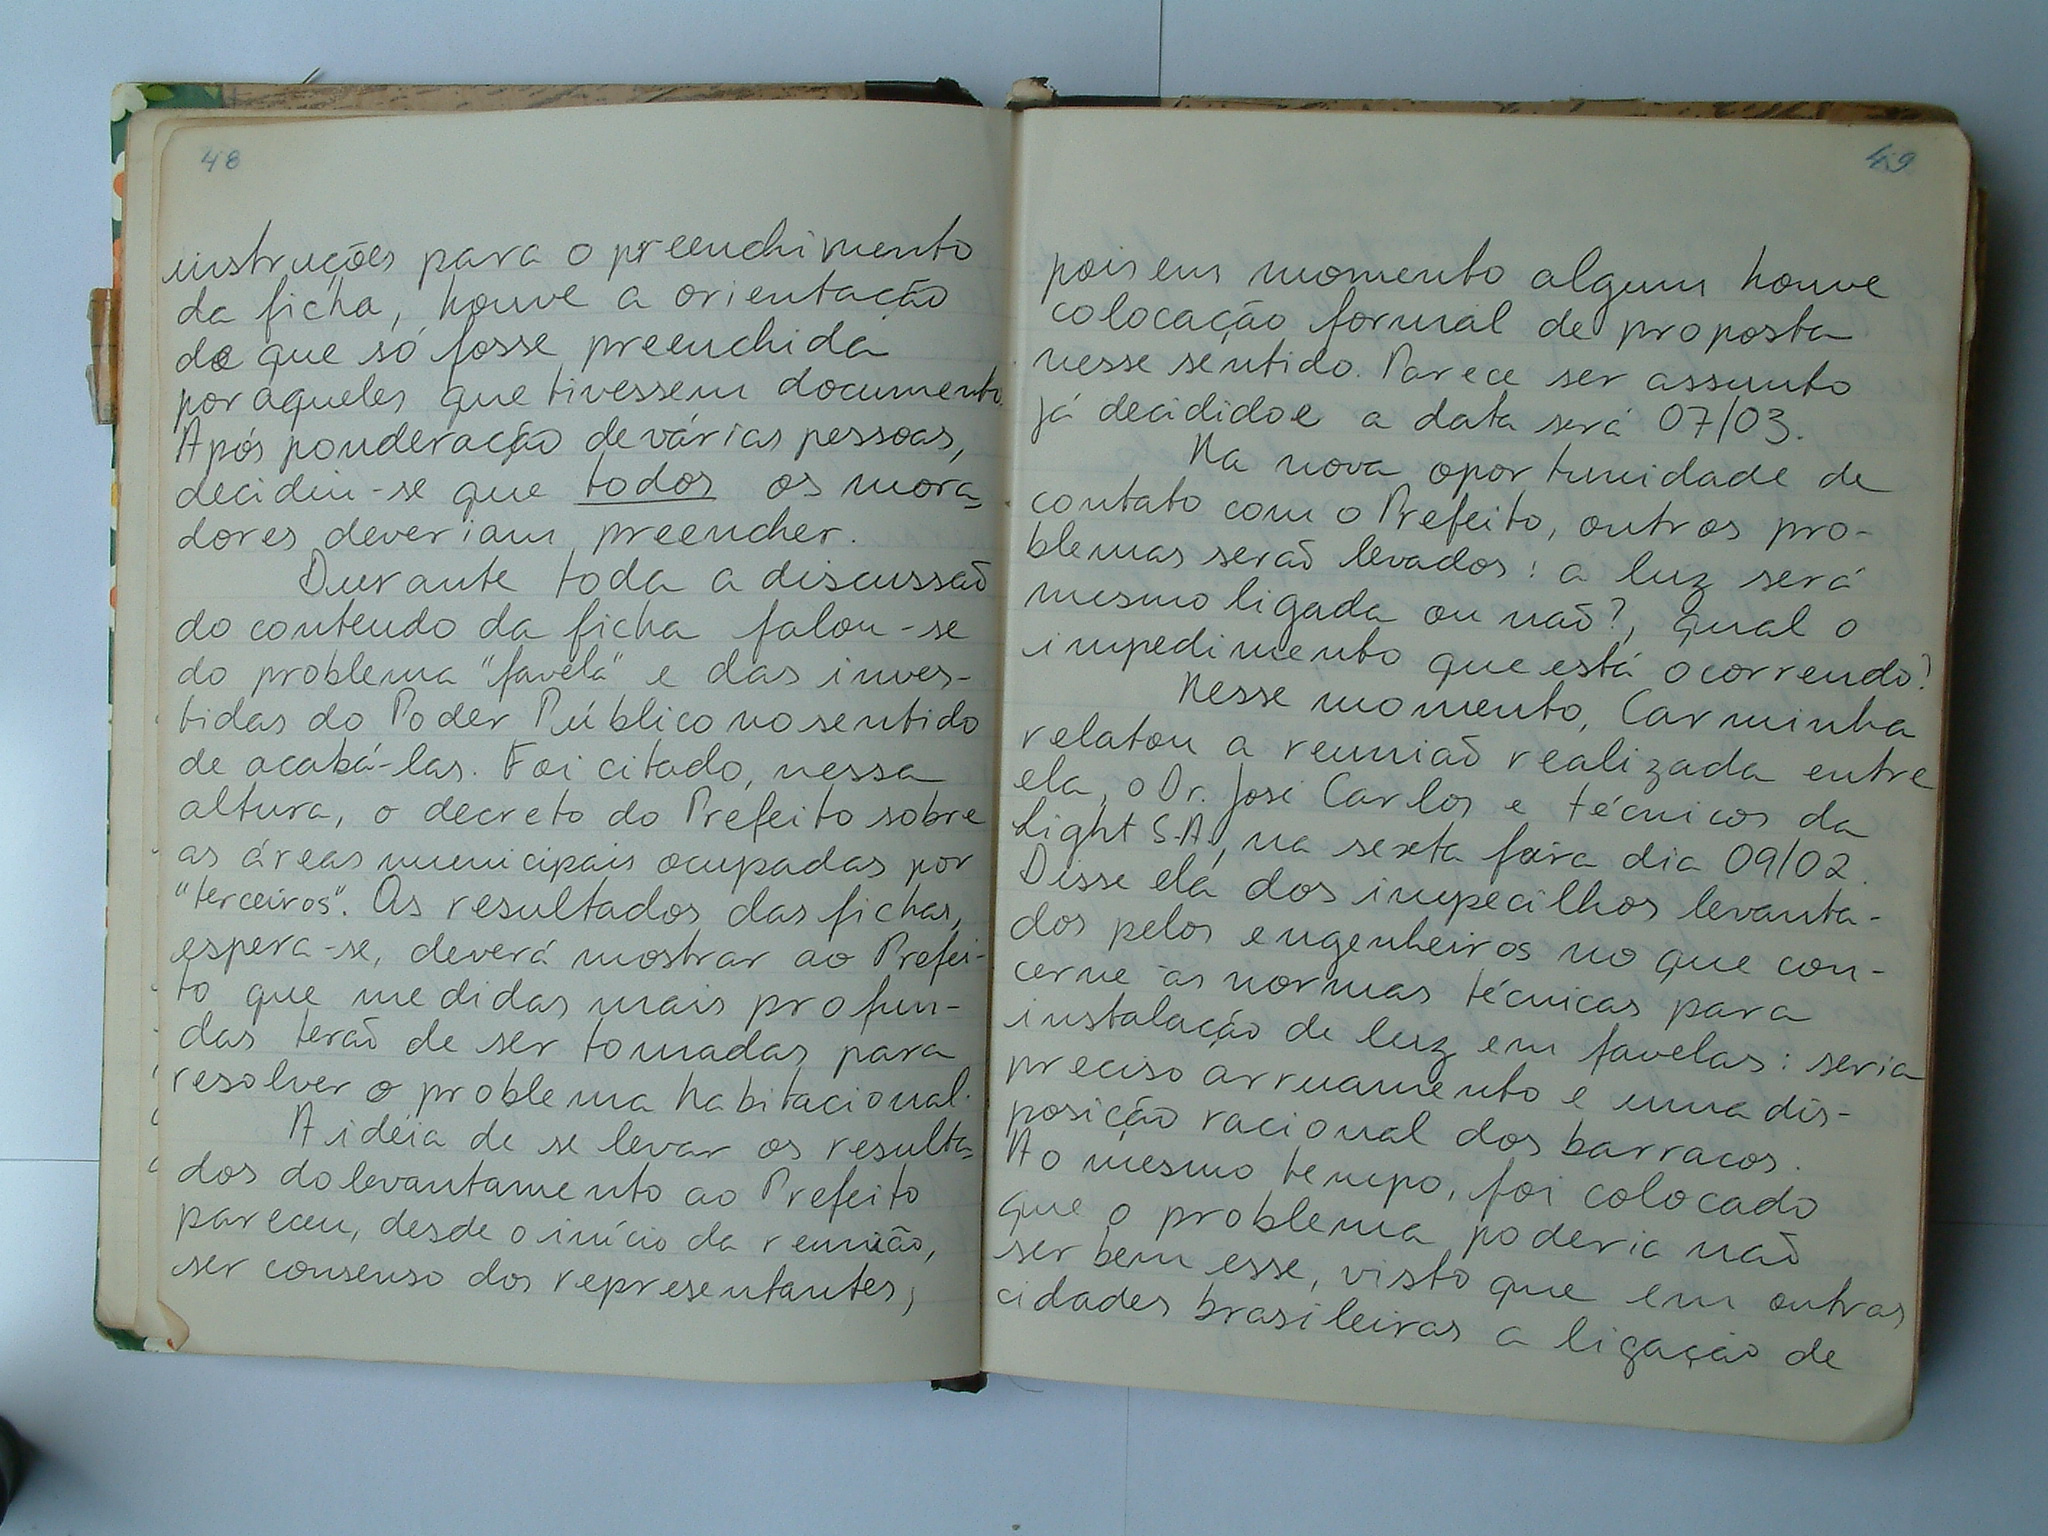 48
instruções para o preenchimento
da ficha, houve a orientação
de que só fosse preenchida
por aqueles que tivessem documento.
Após ponderação de várias pessoas,
decidiu-se que todos os mora-
dores deveriam preencher.
Durante toda a discussão
do conteudo da ficha falou-se
do problema "favela" e das inves-
tidas do Poder Público no sentido
de acabá-las. Foi citado, nessa
altura, o decreto do Prefeito sobre
as áreas municipais ocupadas por
"terceiros". Os resultados das fichas,
espera-se, deverá mostrar ao Prefei-
to que medidas mais profun-
das terão de ser tomadas para
resolver o problema habitacional.
A ideia de se levar os resulta-
dos do levantamento ao Prefeito
pareceu, desde o início da reunião,
ser consenso dos representantes,
49
pois em momento algum houve
colocação formal de proposta
nesse sentido. Parece ser assunto
já decidido e a data será 07/03.
Na nova oportunidade de
contato com o Prefeito, outros pro-
blemas serão levados: a luz será
mesmo ligada ou não?, qual o
impedimento que está ocorrendo?
Nesse momento, Carminha
relatou a reunião realizada entre
ela, o Dr. José Carlos e técnicos da
Light S.A, na sexta feira dia 09/02.
Disse ela dos impecilhos levanta-
dos pelos engenheiros no que con-
cerne às normas técnicas para
instalação de luz em favelas: seria
preciso arruamento e uma dis-
posição racional dos barracos.
Ao mesmo tempo, foi colocado
que o problema poderia não
ser bem esse, visto que em outras
cidades brasileiras a ligação de